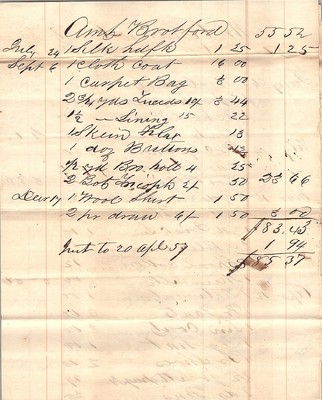 Amt Brotford 55 52
July 24 1 Silk hdkf 1 25 1 25
Sept 6 1 Cloth Coat 16 00
1 Carpet Bag 3 00
2 3/4 yds 3 44
1 1/2 " Lining 15 22
1 Skein Flax 13
1 doz Buttons
1/2 yd 4 25
2 50 23 66
Dec 17 1 Wool Shirt 1 50
2 pr draw 6/ 1 50 3 00
$83.43
Int to 20 Apl 57 1 94
$85 37